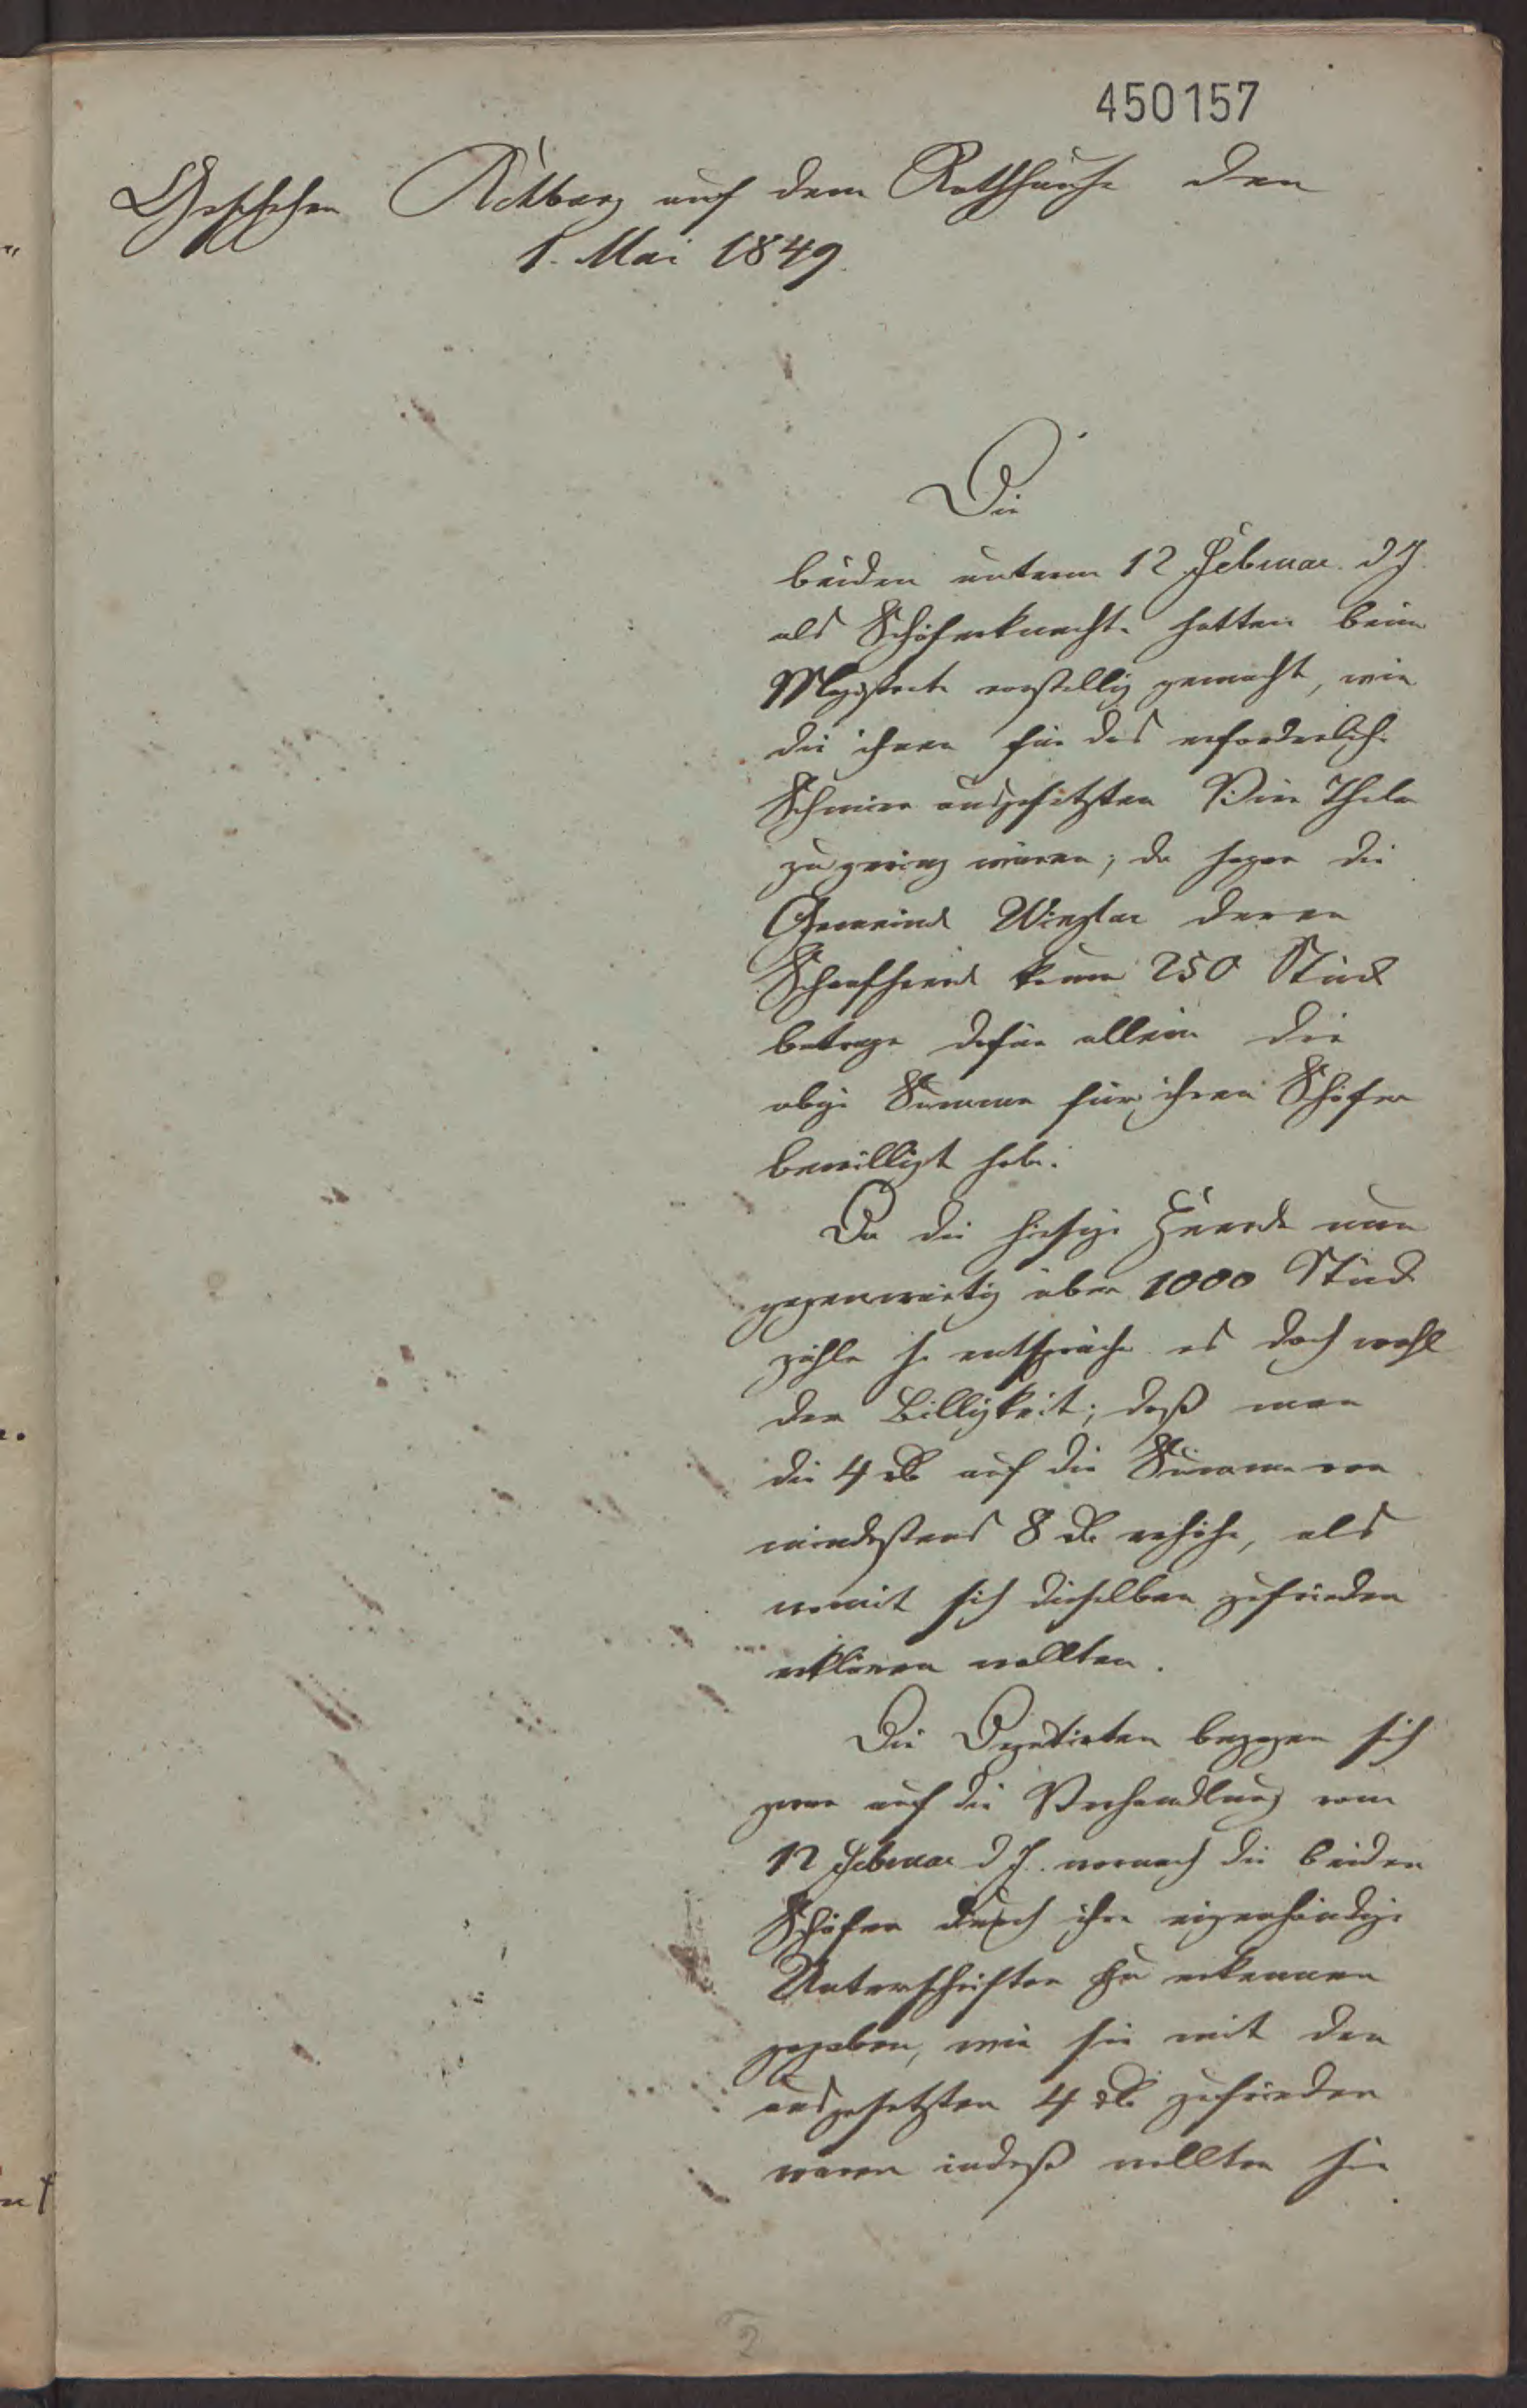 450157
Geschehen Rehburg auf dem Rathhause den
1. Mai 1849.
Die
beiden unterm 12 Februar. d J.
als Schäferknechte hatten beim
Magistrate vorstellig gemacht, wie
die ihnen für das erforderliche
Schmier ausgesetzten Vier Thaler
zu gering wären; da sogar die
Gemeinde Winzlar deren
Schaafheerde kaum 250 Stück
betrage dafür allein die
obige Summe für ihren Schäfer
bewilligt habe.
Da die hiesige Heerde nun
gegenwärtig über 1000 Stück
zähle so entspräche es doch wohl
der Billigkeit; daß man
die 4 rℓ auf die Summe von
mindestens 8 rℓ erhöhe, als
womit sich dieselben zufrieden
erklären wollten.
Die Deputirten bezogen sich
zwar auf die Verhandlung vom
12 Februar d J. wornach die beiden
Schäfer durch ihre eigenhändige
Unterschriften zu erkennen
gegeben, wie sie mit den
ausgesetzten 4 rℓ zufrieden
waren indeß wollten sie
2